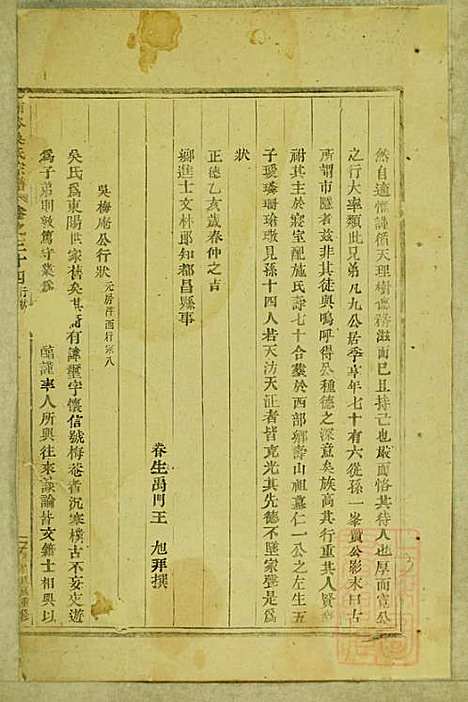 然自適惟謹循天理樹德務滋而已且持己也嚴而恪其待人也厚而寬公
之行大率類此兄弟凡九公居季享年七十有六從孫一峯贊公影末曰古
所謂市隱者兹非其徒與嗚呼得公種德之深意矣族高其行重其人賢
祔其主於寢室配施氏壽七十合塟於西部鄉壽山祖墓仁一公之左生五
子瑷璘珊瑜璥見孫十四人若天汸天征者皆克光其先德不墜家聲是為
狀
正德乙亥歲春仲之吉
鄉進士文林郎知都昌縣事
眷生禹門王 旭拜撰
吳梅庵公行狀 元房
吳氏為東陽世家舊矣其裔有諱璽字懷信號梅菴者沉寂樸古不妄交遊
為子弟則敦篤守業為 醇謹率人所與往來談論計文籍士相與以
吳氏宗譜 卷之三十四 行狀